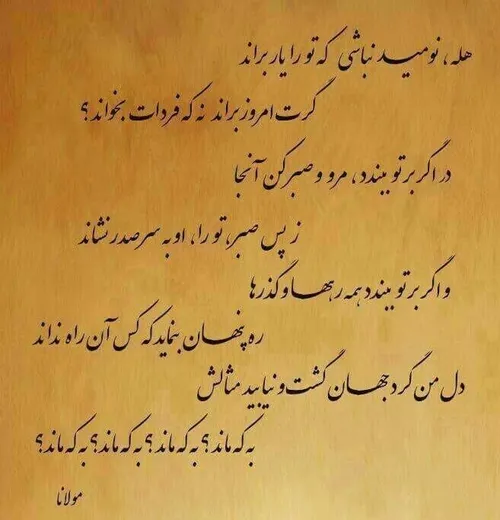 هله، نومید نباشی که تو را یار براند
گرت امروز براند نه که فردات بخواند؟
در اگر بر تو ببندد، مرو و صبر کن آنجا
ز پس صبر، تو را، او به سر صدر نشاند
و اگر بر تو ببندد همه رهها و گذرها
ره پنهان بنماید که کس آن راه نداند
دل من گرد جهان گشت و نیابید مثالش
به که ماند؟ به که ماند؟ به که ماند؟ به که ماند؟
مولانا